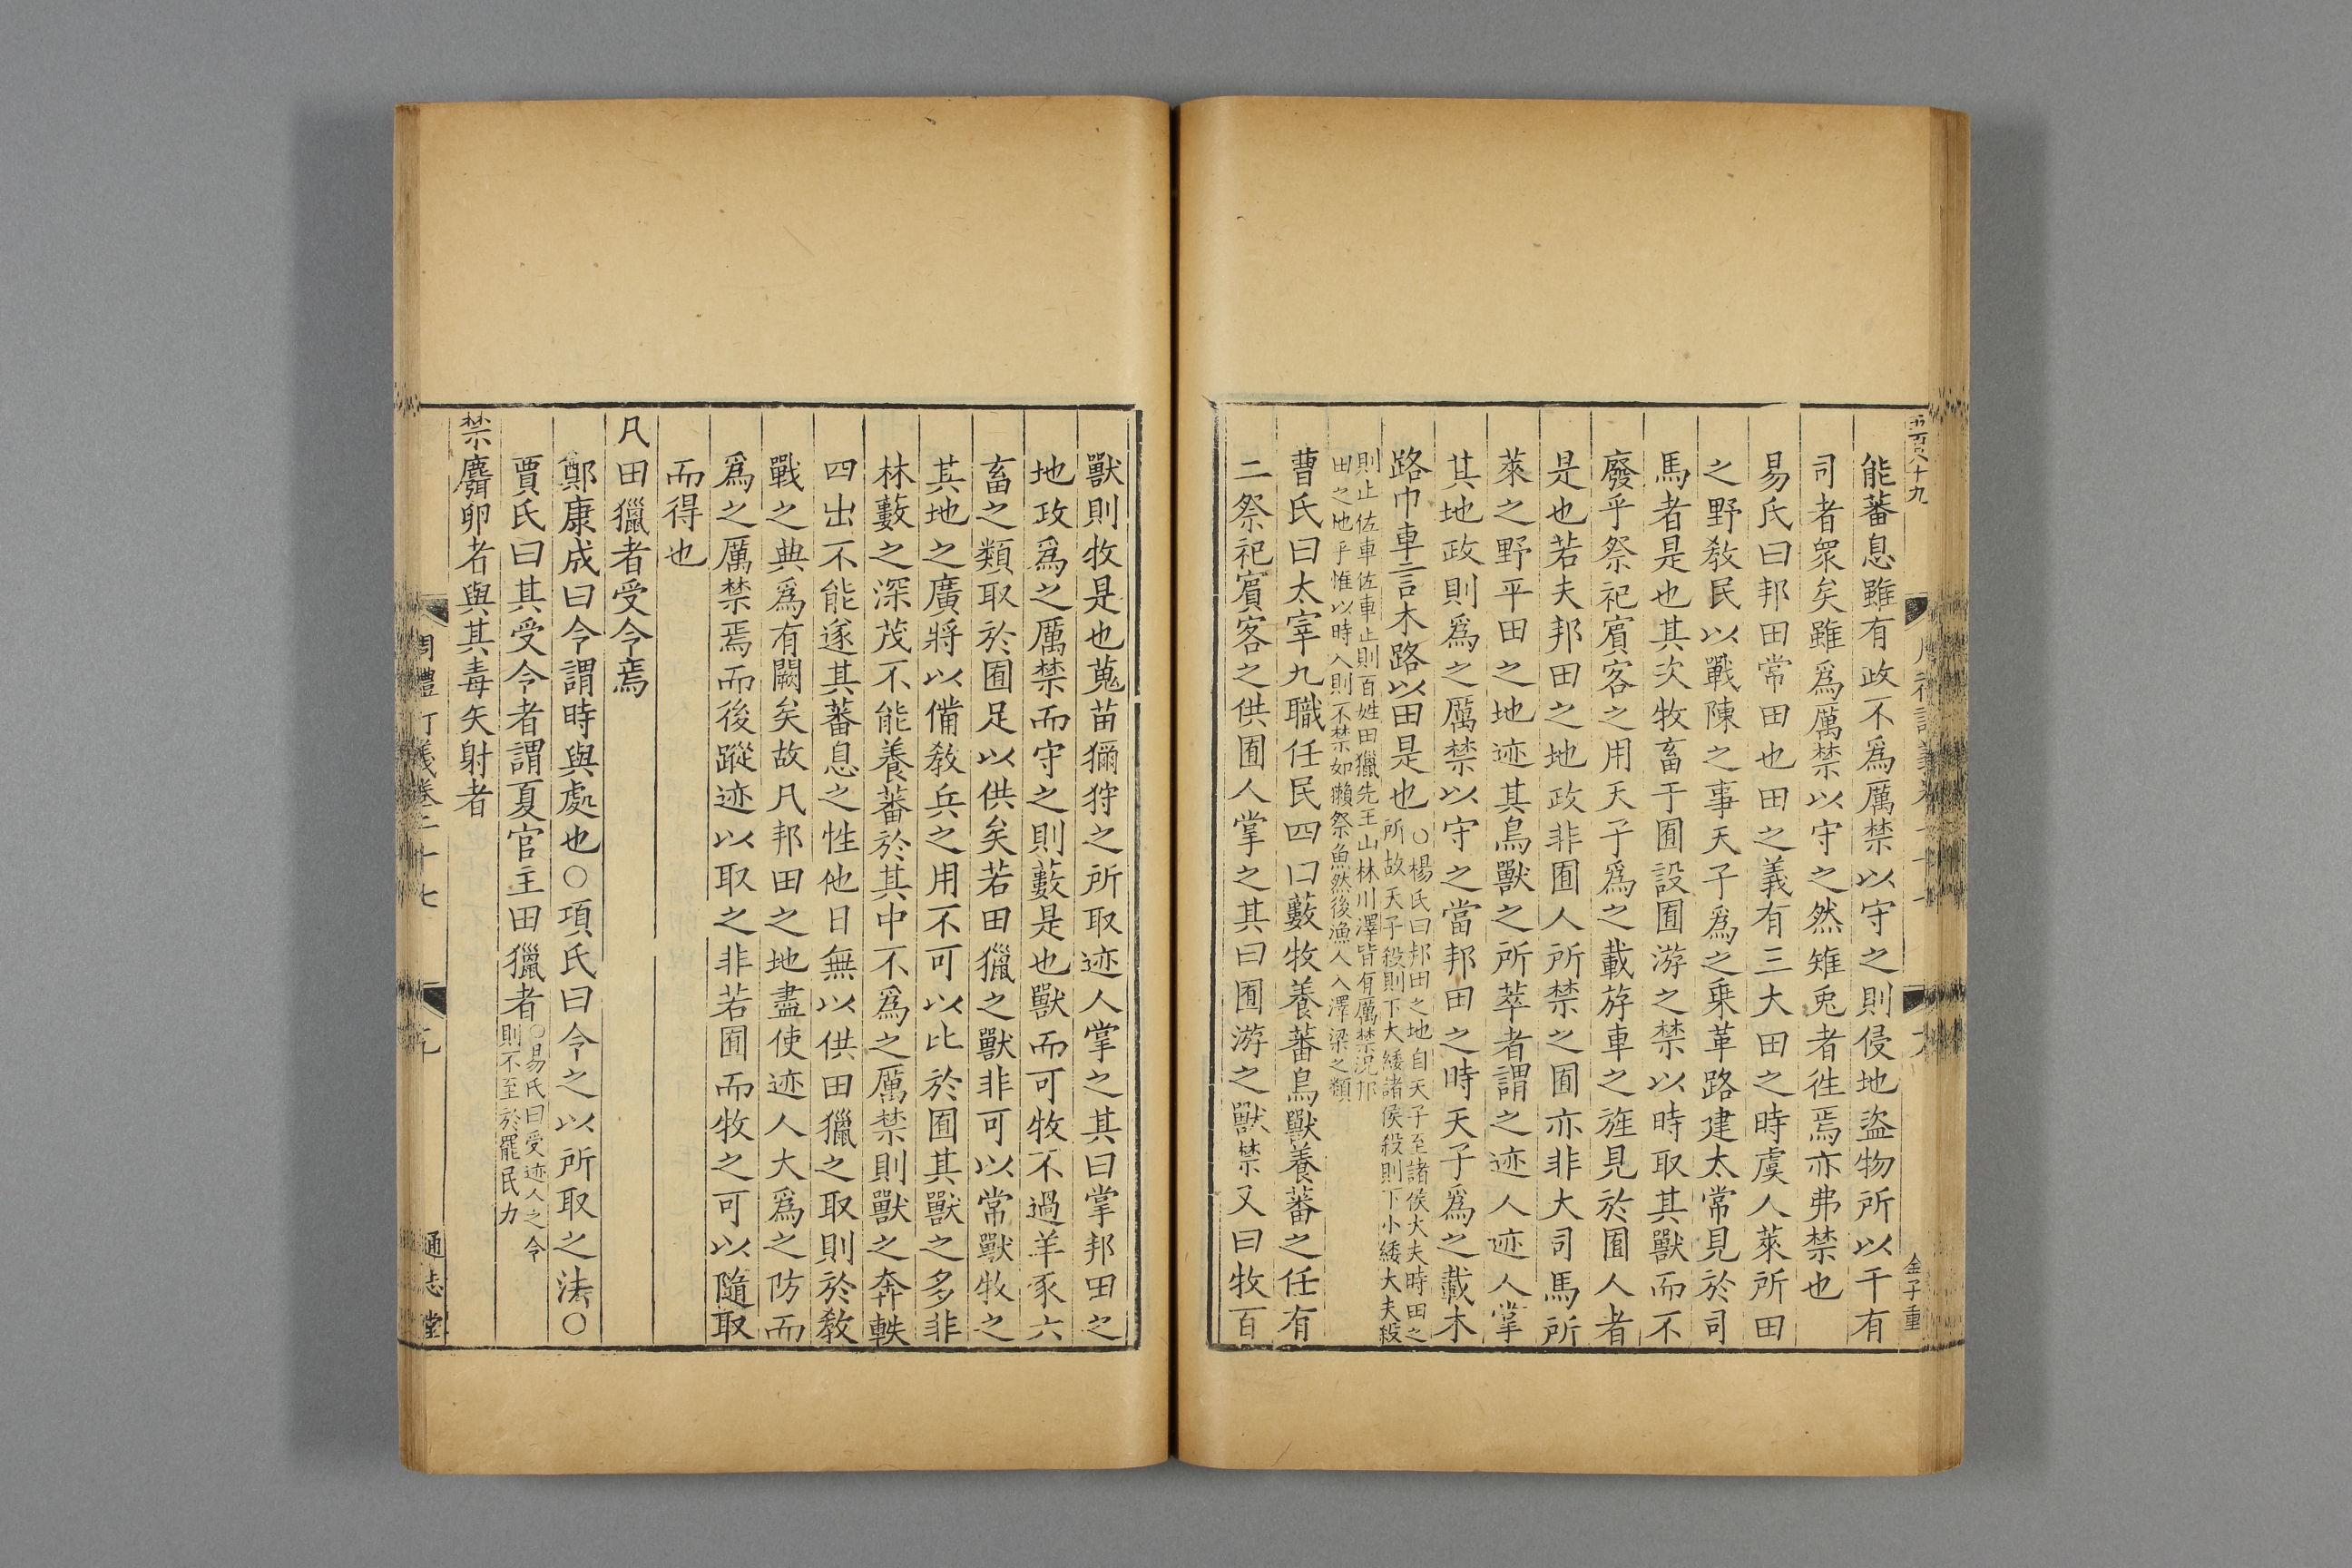 能蕃息雖有政不爲厲禁以守之則侵地盜物所以干有
司者衆矣雖爲厲禁以守之然雉兎者徃焉亦弗禁也
易氏曰邦田常田也田之義有三大田之時虞人萊所田
之野敎民以戰陳之事天子爲之乗革路建太常見於司
馬者是也其次牧畜于囿設囿游之禁以時取其獸而不
廢乎祭祀賓客之用天子爲之載斿車之旌見於囿人者
是也若夫邦田之地政非囿人所禁之囿亦非大司馬所
萊之野平田之地迹其鳥獸之所萃者謂之迹人迹人掌
其地政則爲之厲禁以守之當邦田之時天子爲之載木
路巾車言木路以田是也
○楊氏曰邦田之地自天子至諸侯大夫時田之
所故天子殺則下大綏諸侯殺則下小綏大夫殺
則止佐車佐車止則百姓田獵先王山林川澤皆有厲禁况邦
田之地乎惟以時入則不禁如獺祭魚然後漁人入澤梁之類
曹氏曰太宰九職任民四曰藪牧養蕃鳥獸養蕃之任有
二祭祀賓客之供囿人掌之其曰囿游之獸禁又曰牧百
獸則牧是也蒐苗獮狩之所取迹人掌之其曰掌邦田之
地政爲之厲禁而守之則藪是也獸而可牧不過羊豕六
畜之類取於囿足以供矣若田獵之獸非可以常獸牧之
其地之廣將以備敎兵之用不可以比於囿其獸之多非
林藪之深茂不能養蕃於其中不爲之厲禁則獸之奔軼
四出不能遂其蕃息之性他日無以供田獵之取則於敎
戰之典爲有闕矣故凡邦田之地盡使迹人大爲之防而
爲之厲禁焉而後蹤迹以取之非若囿而牧之可以隨取
而得也
凡田獵者受令焉
鄭康成曰令謂時與處也○項氏曰令之以所取之法○
賈氏曰其受令者謂夏官主田獵者
○易氏曰受迹人之令
則不至於罷民力
禁麛卵者與其毒矢射者
周禮訂義卷二十七
通志堂
金子重